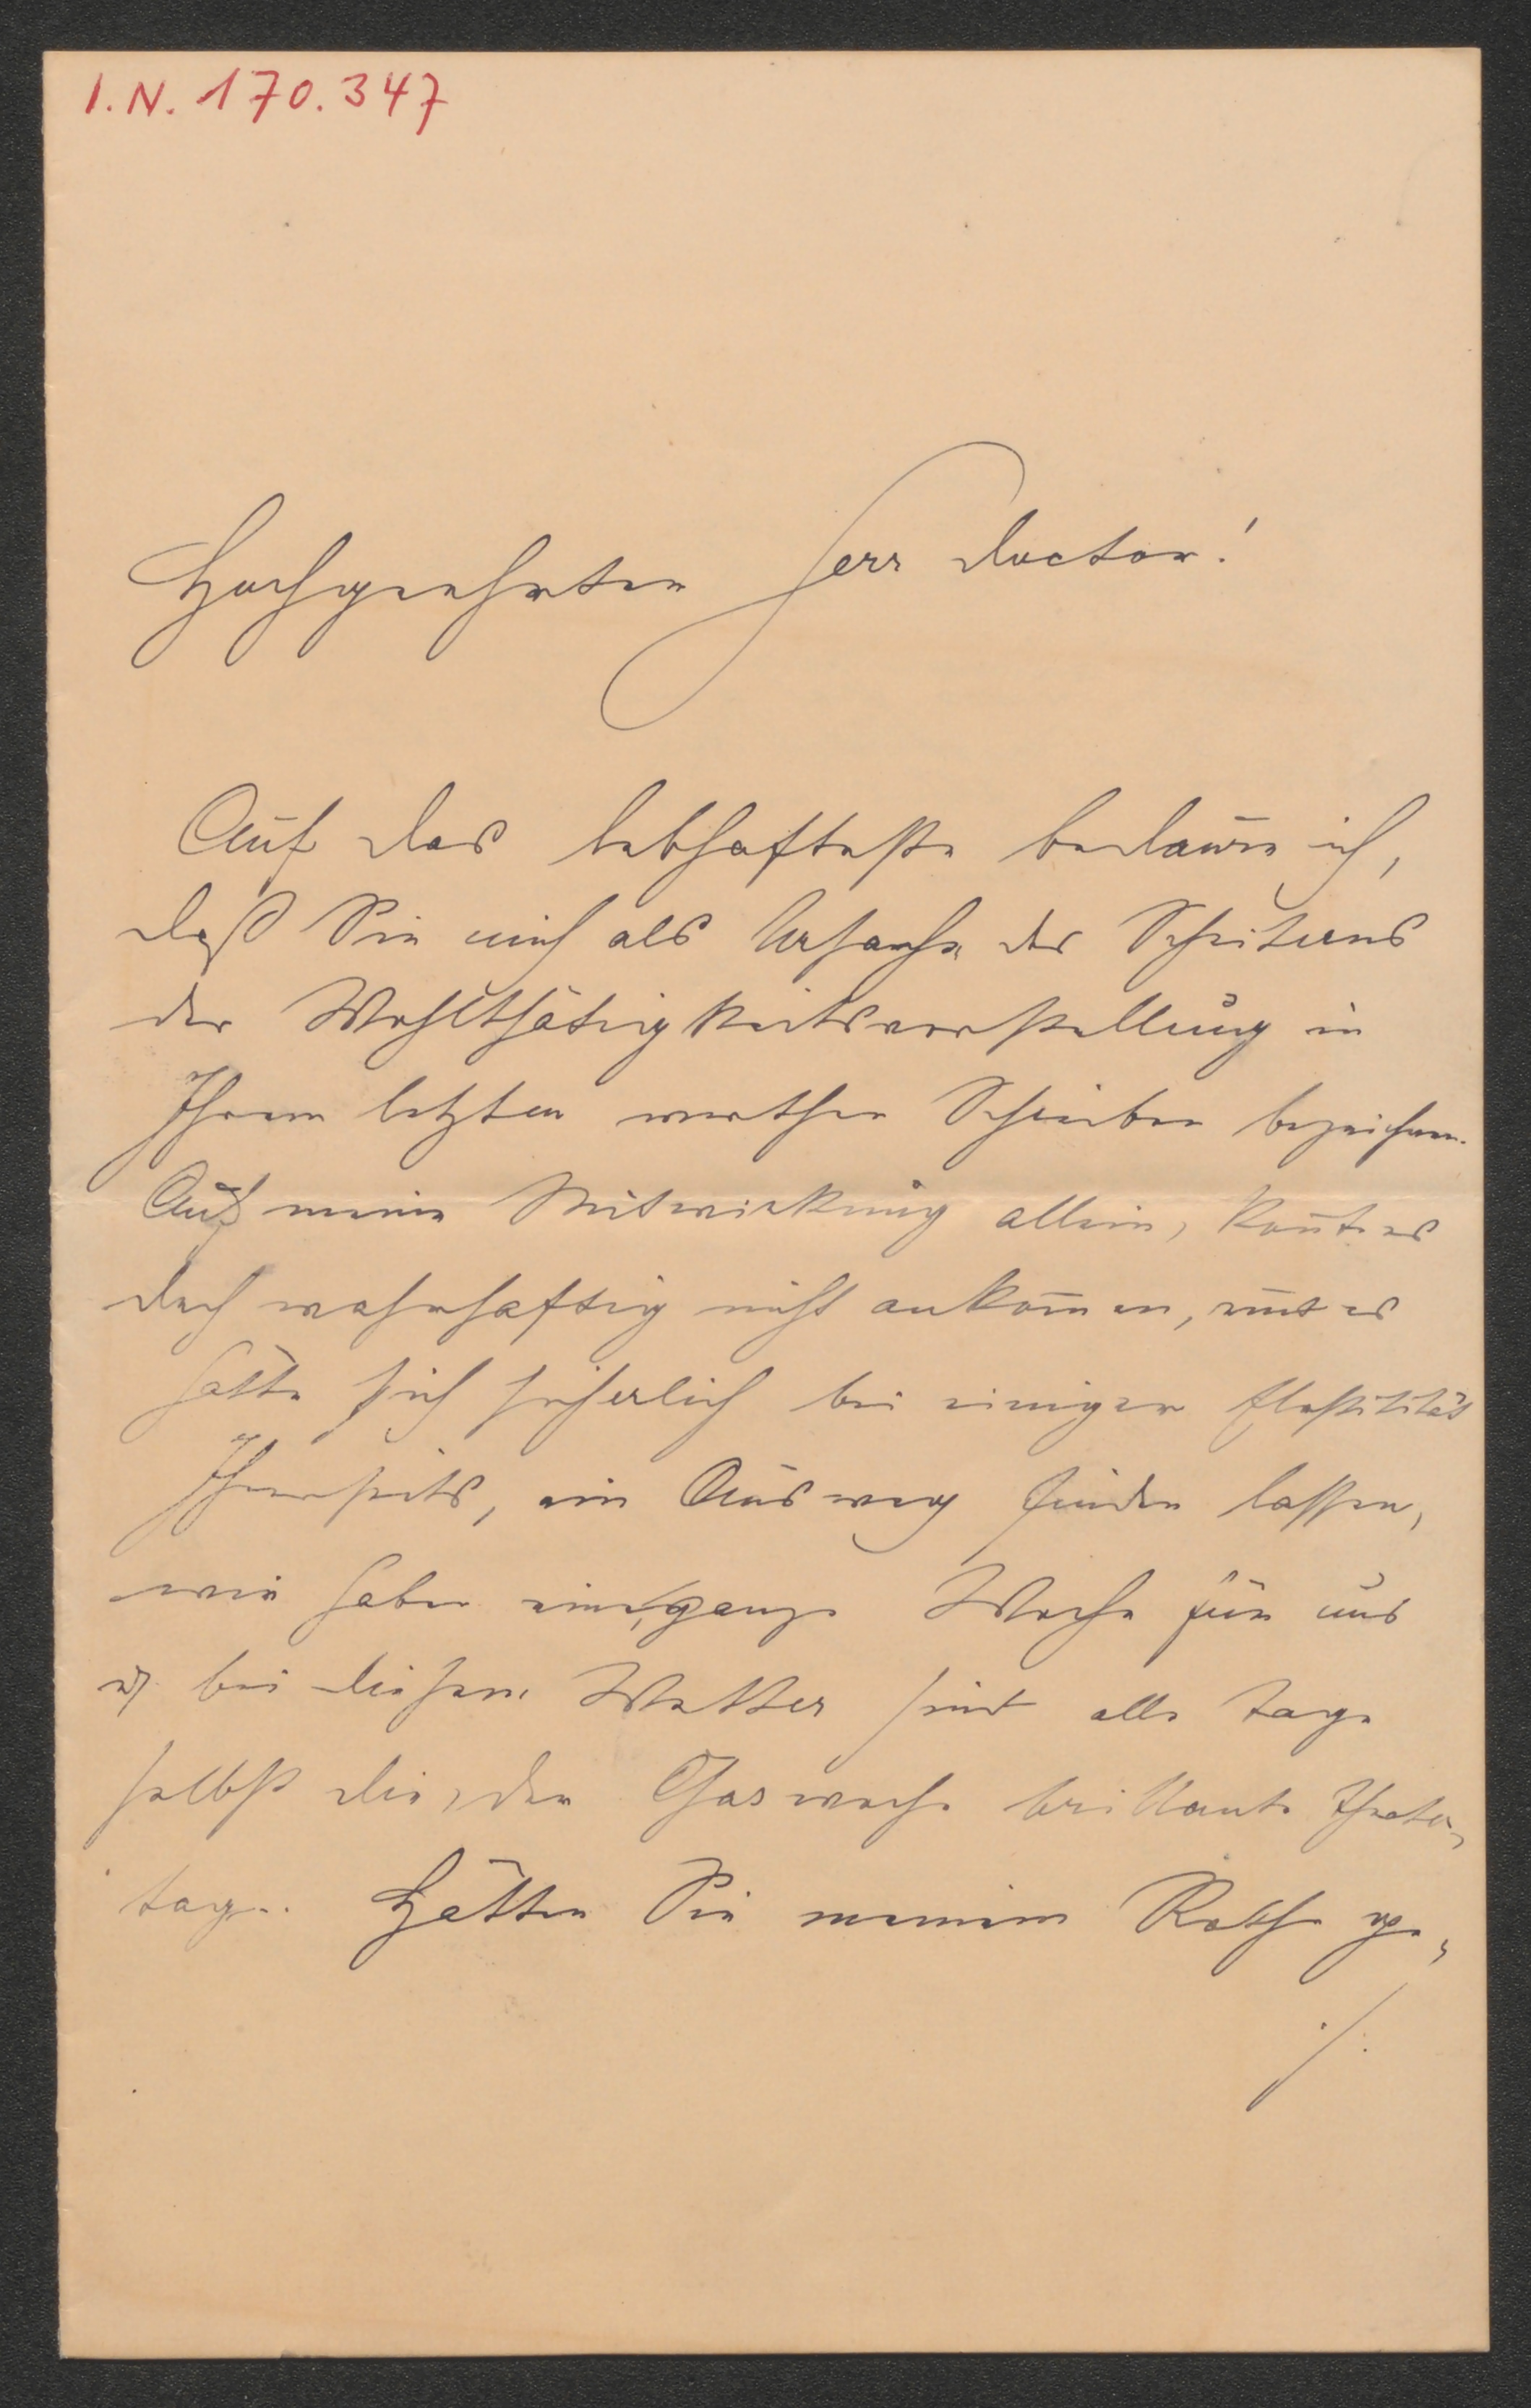 I.N. 170.347
Hochgeehrter Herr Doctor!
Auf das lebhafteste bedaure ich,
daß Sie mich als Ursache des Scheiterns
der Wohlthätigkeitsvorstellung in
Ihrem letzten werthen Schreiben bezeichnen.
Auf meine Mitwirkung allein, konnte es
doch wahrhaftig nicht ankom̄en, und es
hätte sich sicherlich bei einiger Elastizität
Ihrerseits, ein Ausweg finden lassen,
wir haben eine ganze Woche für uns
u. bei diesem Wetter sind alle Tage
selbst die, der Charwoche brillante Theater-
tage. Hätten Sie meinem Rathe ge-
./.